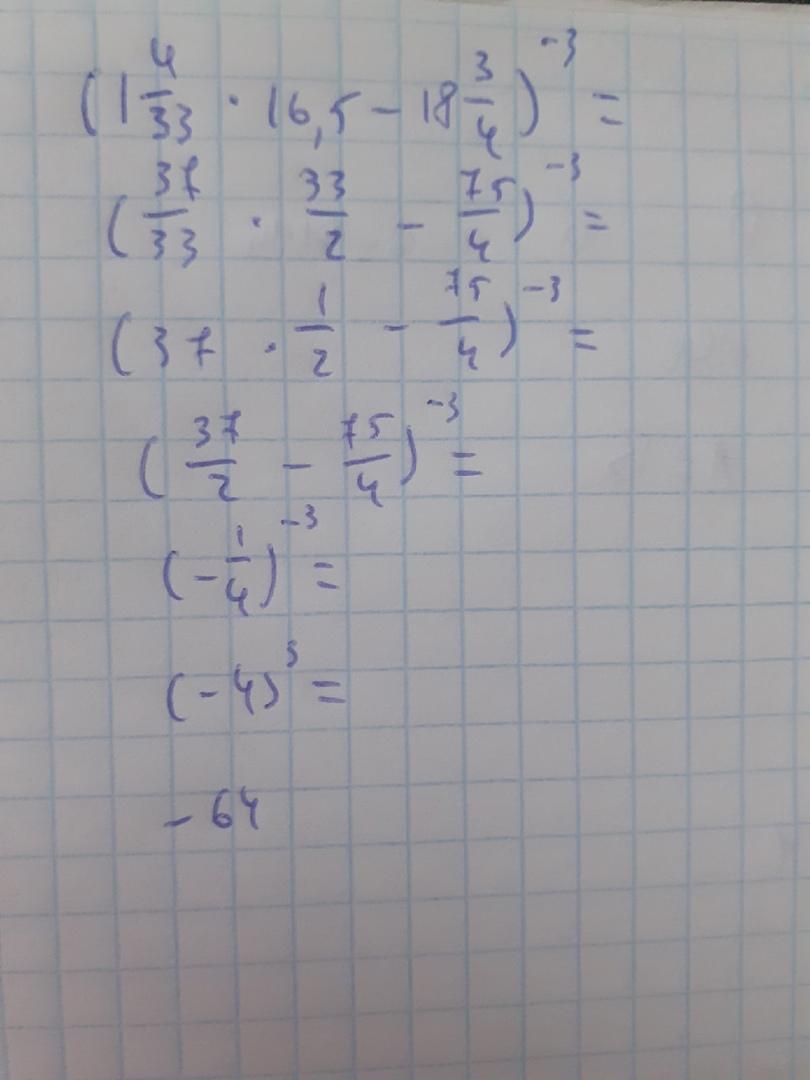 (1 4/33 · 16,5 - 18 3/4)^-3 =
(37/33 · 33/2 - 75/4)^-3 =
(37 · 1/2 - 75/4)^-3 =
(37/2 - 75/4)^-3 =
(-1/4)^-3 =
(-4)^3 =
-64